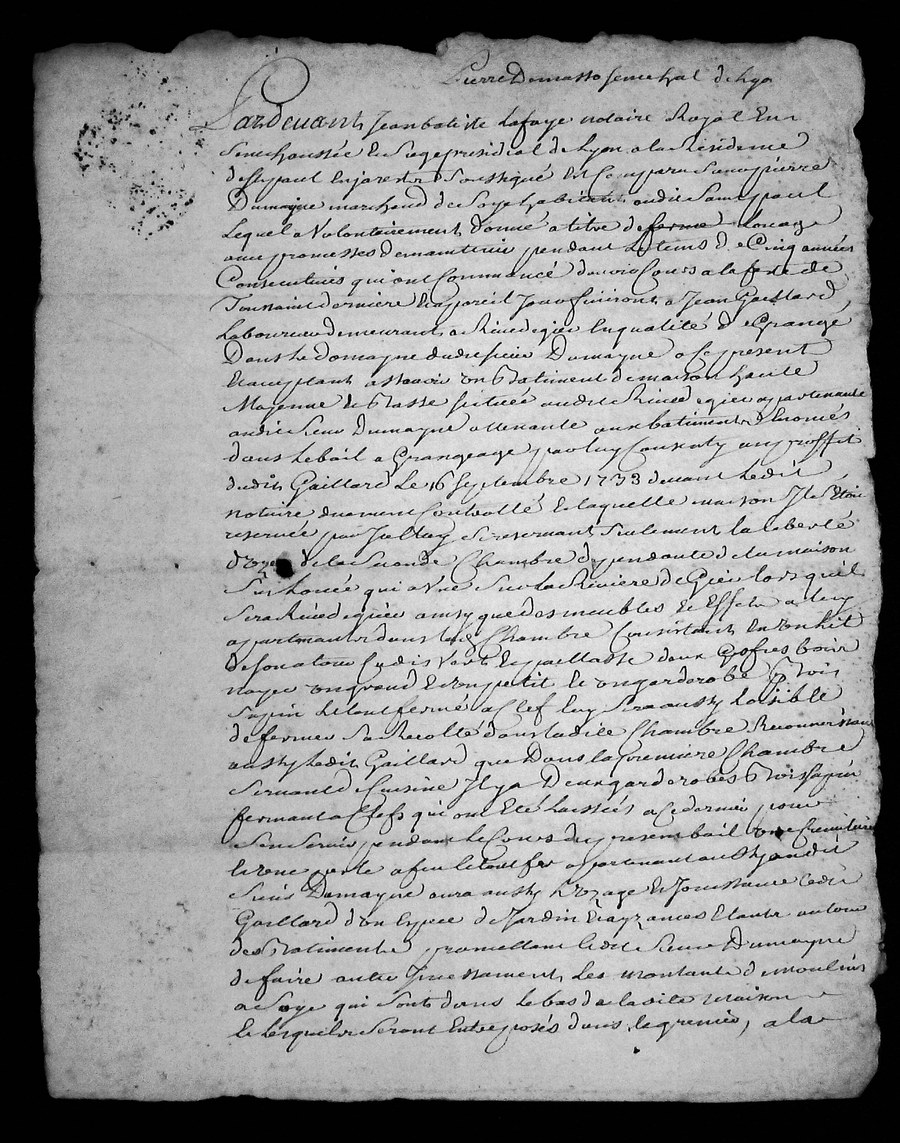 Pierre Dumas senechal de Lyo
Pardevant Jean batiste Lafaye notaire Royal En
Senechaussée Et Siege presidial de Lyon a la Residence
de St paul En jarest Soussigné Est Comparu Sieur pierre
Dumayne marchand de Soye habitant audit Saint paul
Lequel a Volontairement donné a titre de ferme Louage
avec promesses de maintenir pendant Le tems de Cinq années
Consecutives qui ont Commencé du vis Cours a la feste de
Toussaint derniere Et a pareil Jour finiront a Jean Gaillard
Laboureur demeurant a Rivedegier En qualité de Grangé
Dans Le domayne dudit Sieur Dumayne a Ce present
Et acceptant assavoir un Batiment de maison haute
Moyenne Et Basse scituée audit Rivedegier appartenante
audit Sieur Dumayne attenante aux batiments Enoncés
dans Le bail a Grangeage par luy Consenty au proffit
dudit Gaillard Le 16 Septembre 1733 devant Le dit
notaire duement Controllé Et laquelle maison Il S'Etoit
reservée par Se reservant Seulement la liberté
d'uzer de la Seconde Chambre dependante de la maison
Sus honcée qui a Vue Sur la Riviere de Gier lors qu'il
Sera a Rivedegier ainsy que des meubles Et Effets a luy
appartenants dans lad Chambre Consistant En un Lit
de Cadis Vert Et paillasse deux Coffres bois
noyer un grand Et un petit Et un garderobe Bois
Sapin Le tout fermé a Clef luy Sera aussy Loisible
de fermer Sa Recolte dans ladite Chambre Reconnoissant
aussy Ledit Gaillard que Dans la premiere Chambre
Servant de Cuisine Il y a Deux garderobes Bois Sapin
fermant a Clefs qui ont Eté Laissés a Ce dernier pour
S'en Servir pendant Le Cours du present bail une Cremliere
Et une pele a feu Le tout fer appartenant aussy audit
Sieur Dumayne aura aussy L'Uzage Et Jouissance Ledit
Gaillard d'un Espece de Jardin Et ayzances Etants autour
des Batiments promettant Ledit Sieur Dumayne
de faire auter Incessament Les montants de moulins
a Soye qui Sont dans Le bas de lad maison
Et Lesquels Seront Entreposés dans Le grenier, a la